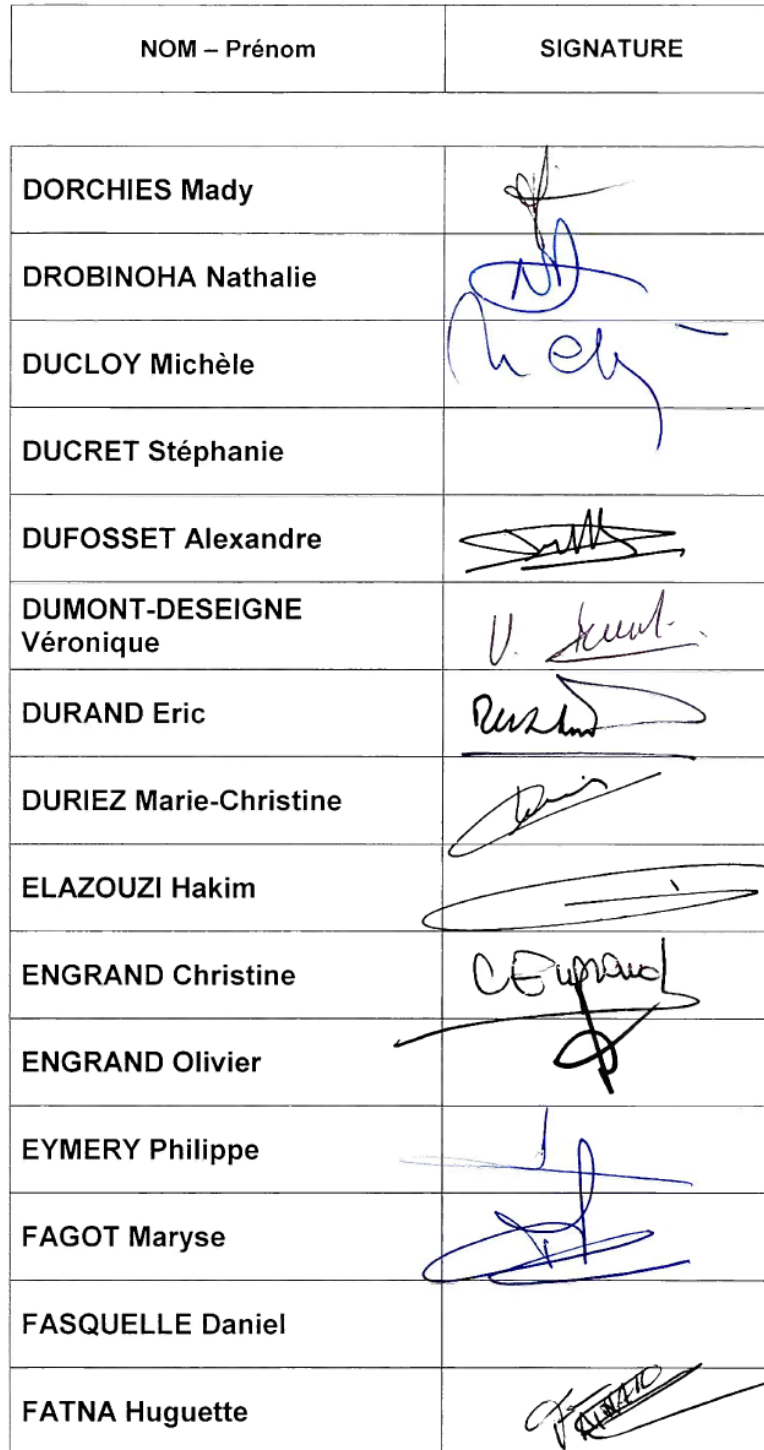 NOM – Prénom SIGNATURE
DORCHIES Mady
DROBINOHA Nathalie
DUCLOY Michèle
DUCRET Stéphanie
DUFOSSET Alexandre
DUMONT-DESEIGNE
Véronique
DURAND Eric
DURIEZ Marie-Christine
ELAZOUZI Hakim
ENGRAND Christine C Engrand
ENGRAND Olivier
EYMERY Philippe
FAGOT Maryse
FASQUELLE Daniel
FATNA Huguette